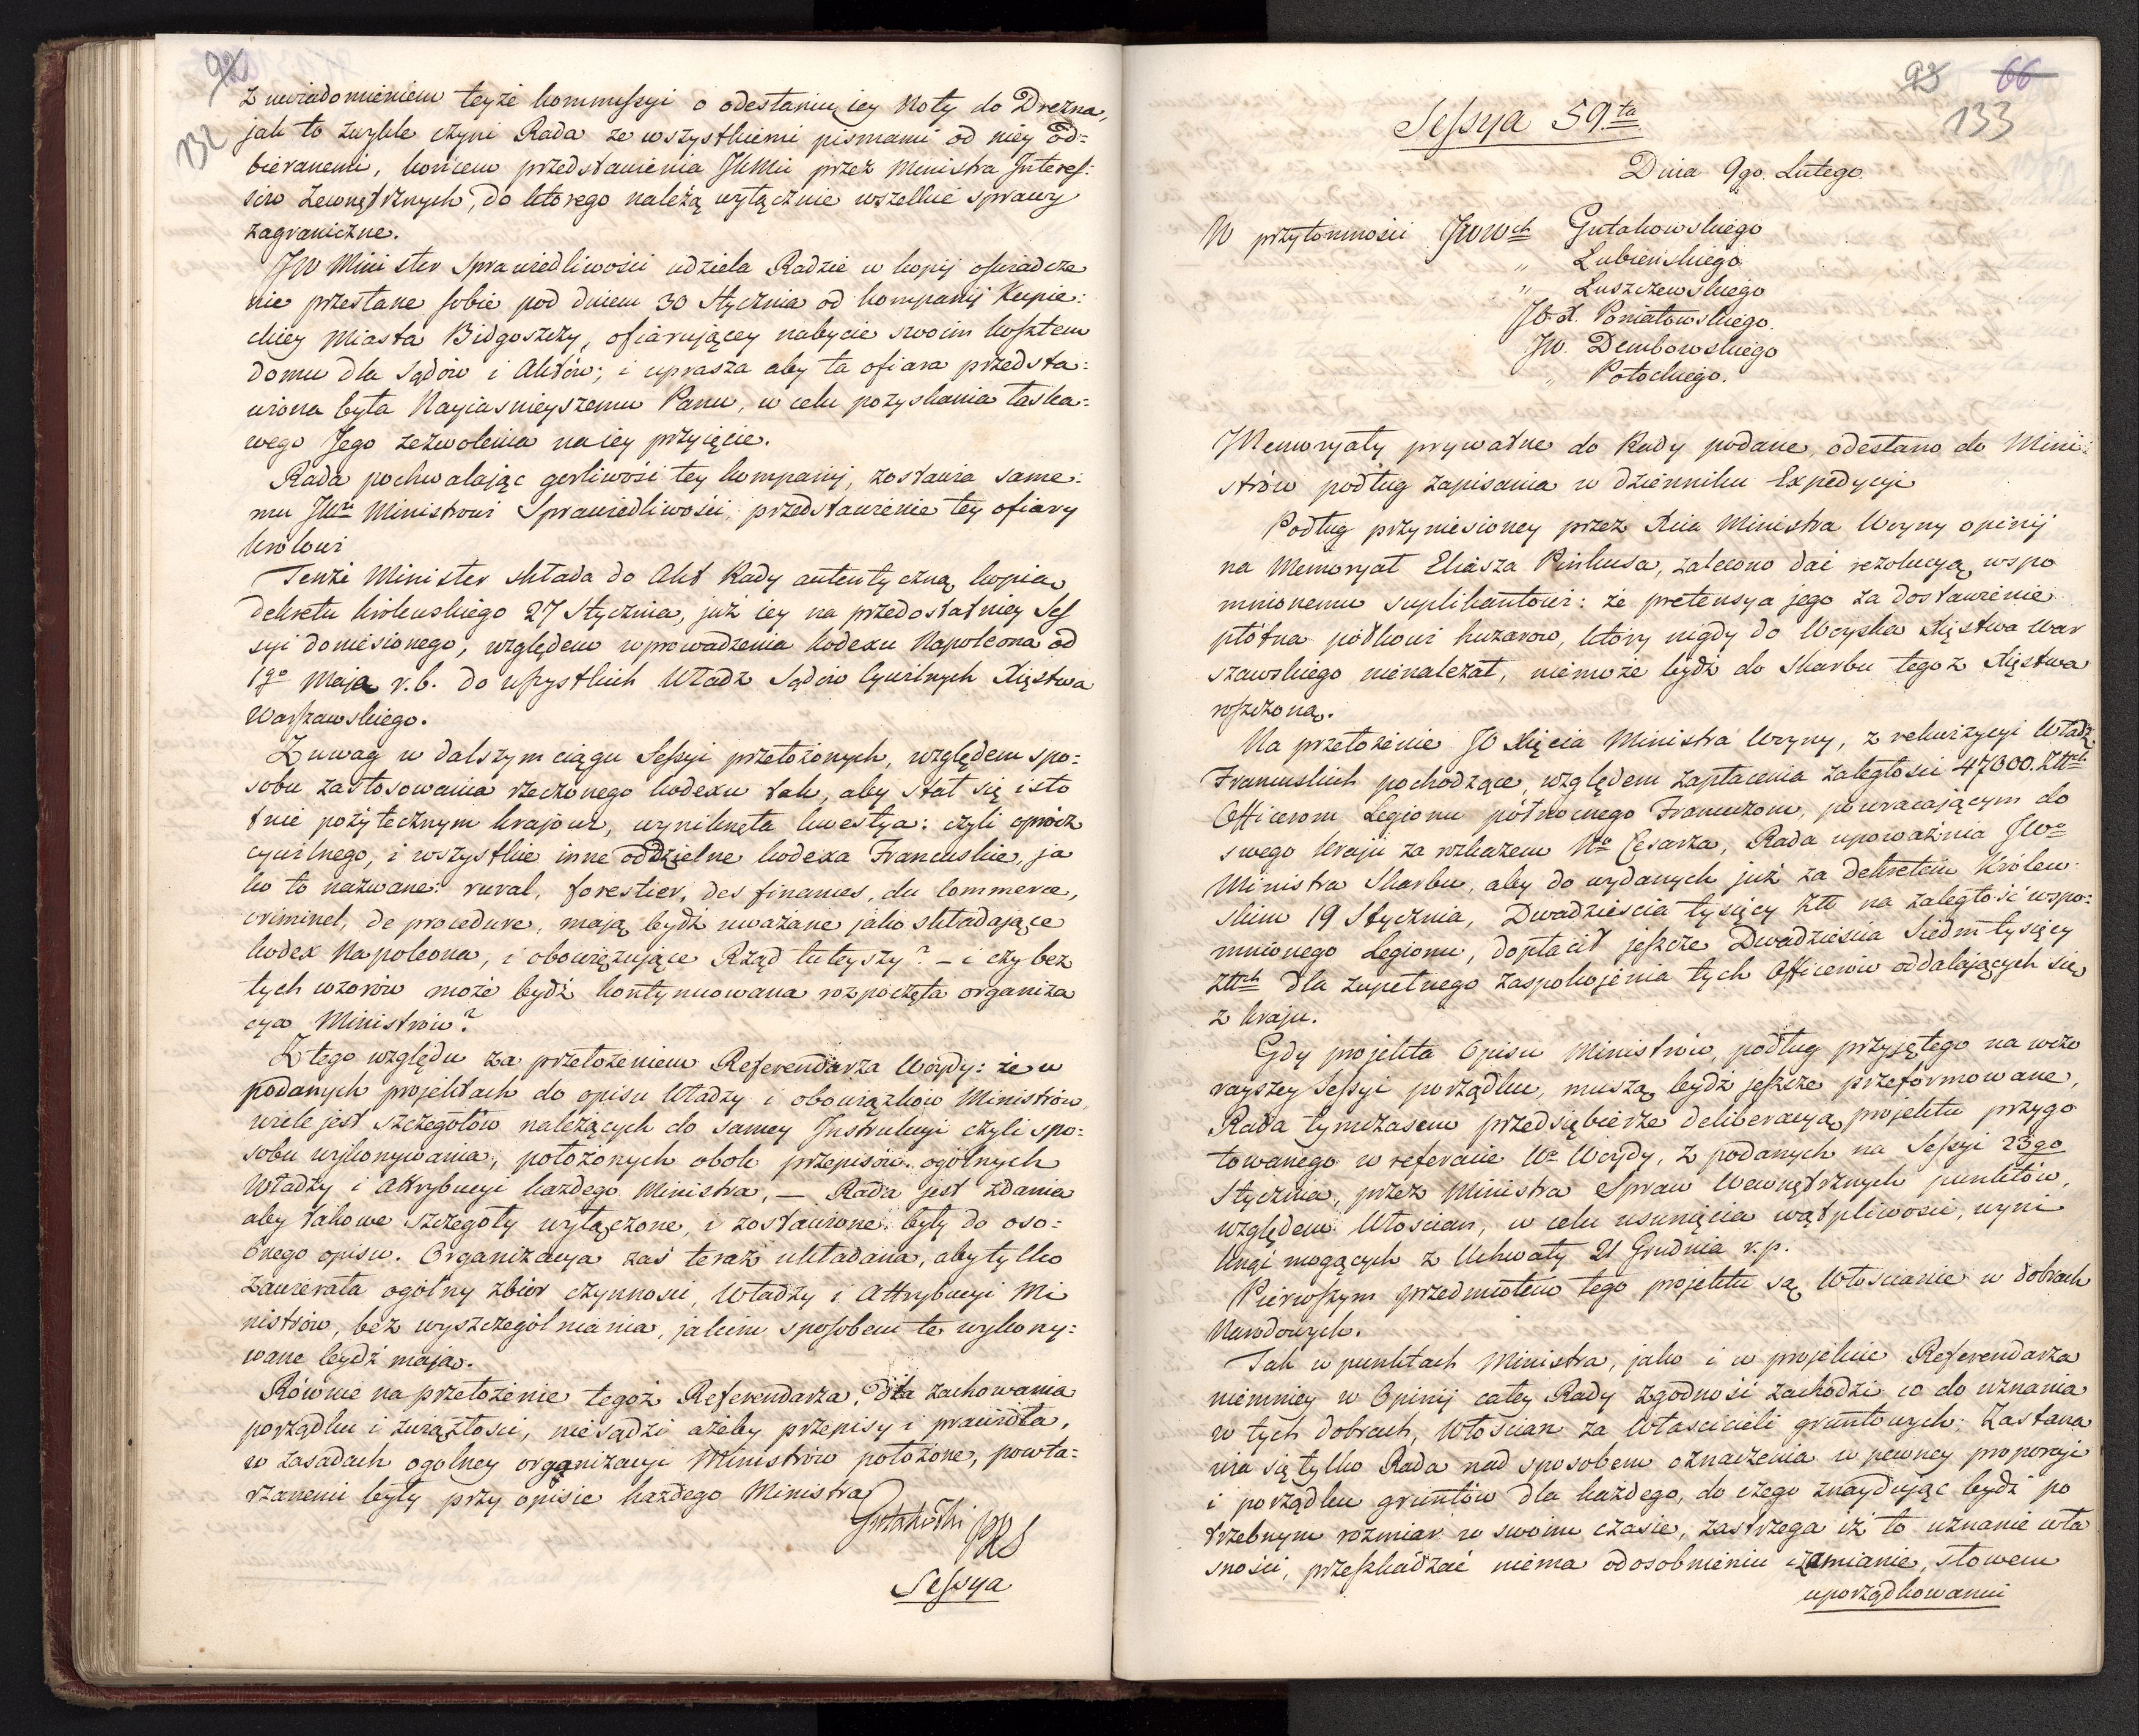 92
132
z uwiadomieniem teyże kommissyi o odesłaniu iey Noty do Drezna,
jak to zwykle czyni Rada ze wszystkiemi pismami od niey od=
bieranemi, końcem przedstawienia JKMci przez Ministra Interes:
sów Zewnętrznych, do którego należą wyłącznie wszelkie sprawy
zagraniczne.
JW Minister Sprawiedliwości udziela Radzie w kopij oświadcze
nie przesłane sobie pod dniem 30 Stycznia od kompanij Kupie:
ckiey Miasta Bidgoszczy, ofiarującey nabycie swoim kosztem
domu dla Sądów i Aktów; i uprasza aby ta ofiara przedsta=
wiona była Nayiasnieyszemu Panu, w celu pozyskania łaska=
wego Jego zezwolenia na iey przyięcie.
Rada pochwalając gorliwość tey kompanij, zostawia same:
mu JWu Ministrowi Sprawiedliwości, przedstawienie tey ofiary
królowi
Tenże Minister składa do Akt Rady autentyczną kopią
dekretu królewskiego 27 Stycznia, już iey na przedostatniey Ses
syi doniesionego, względem wprowadzenia kodexu Napoleona od
1go Maja r.b. do wszystkich Władz Sądów Cywilnych Xięstwa
Warszawskiego.
Z uwag w dalszym ciągu Sessyi przełożonych, względem spo=
sobu zastosowania rzeczonego kodexu tak, aby stał się isto
tnie pożytecznym krajowi, wyniknęła kwestya: czyli oprócz
cywilnego, i wszystkie inne oddzielne kodexa Francuskie, ja
ko to nazwane: rural, forestier, des finances, du commerce,
criminel, de procedure, mają bydź uważane jako składające
kodex Napoleona, i obowięzujące Rząd tuteyszy? – i czy bez
tych wzorów może bydź kontynuowana rozpoczęta organiza
cya Ministrów?
Z tego względu za przełożeniem Referendarza Woydy: że w
podanych projektach do opisu Władzy i obowiązków Ministrów,
wiele jest szczegółów należących do samey Instrukcyi czyli spo=
sobu wykonywania, położonych obok przepisów ogólnych
Władzy i Attrybucyi każdego Ministra, — Rada jest zdania
aby takowe szczegóły wyłączone, i zostawione były do oso=
bnego opisu. Organizacya zaś teraz układana, aby tylko
zawierała ogólny zbiór czynności, Władzy i Attrybucyi Mi
nistrów, bez wyszczególniania, jakim sposobem te wykony=
wane bydź mają.
Równie na przełożenie tegoż Referendarza, dla zachowania
porządku i związłości, niesądzi ażeby przepisy i prawidła,
w zasadach ogólney organizacyi Ministrów położone, powta=
rzanemi były przy opisie każdego Ministra
Gutakowski PRS
Sessya
93 66
133
Sessya 59.ta
Dnia 9go. Lutego.
W przytomności JWWch Gutakowskiego
" Łubieńskiego
" Łuszczewskiego
JO. X. Poniatowskiego.
JW. Dembowskiego
" Potockiego.
Memoryały prywatne do Rady podane, odesłano do Mini=
strów podług zapisania w dzienniku Expedycyi
Podług przyniesioney przez Xcia Ministra Woyny opinij
na Memoryał Eliasza Pinkusa, zalecono dać rezolucyą wspo
mnionemu suplikantowi: że pretensya jego za dostawienie
płótna półkowi huzarów, który nigdy do Woyska Xięstwa War
szawskiego nienależał, niemoże bydź do Skarbu tegoż Xięstwa
roszczoną.
Na przełożenie JO Xięcia Ministra Woyny, z rekwizycyi Władz
Francuskich pochodzące, względem zapłacenia zaległości 47000. Złłch
Officerom Legionu północnego Francuzom, powracającym do
swego kraju za rozkazem No Cesarza, Rada upoważnia JWo
Ministra Skarbu, aby do wydanych już za dekretem Królew=
skim 19 Stycznia, Dwadzieścia tysięcy Złł na zaległość wspo=
mnionego Legionu, dopłacił jeszcze Dwadzieścia Siedm tysięcy
Złłch dla zupełnego zaspokojenia tych Officerów oddalających się
z kraju.
Gdy projekta Opisu Ministrów, podług przyjętego na wczo
rayszey Sessyi porządku, muszą bydź jeszcze przeformowane,
Rada tymczasem przedsiębierze deliberacyą projektu przygo
towanego w referacie Wo Woydy, z podanych na Sessyi 23go
Stycznia, przez Ministra Spraw Wewnętrznych punktów,
względem Włościan, w celu usunięcia wątpliwości, wyni
knąć mogących z Uchwały 21 Grudnia r.p.
Pierwszym przedmiotem tego projektu są Włościanie w dobrach
Narodowych.
Tak w punktach Ministra, jako i w projekcie Referendarza
niemniey w Opinij całey Rady zgodność zachodzi co do uznania
w tych dobrach, Włościan za Właścicieli gruntowych: Zastana
wia się tylko Rada nad sposobem oznaczenia w pewney proporcyi
i porządku gruntów dla każdego, do czego znaydując bydź po
trzebnym rozmiar w swoim czasie, zastrzega iż to uznanie wła
sności, przeszkadzać niema odosobnieniu i zamianie, słowem
uporządkowaniu